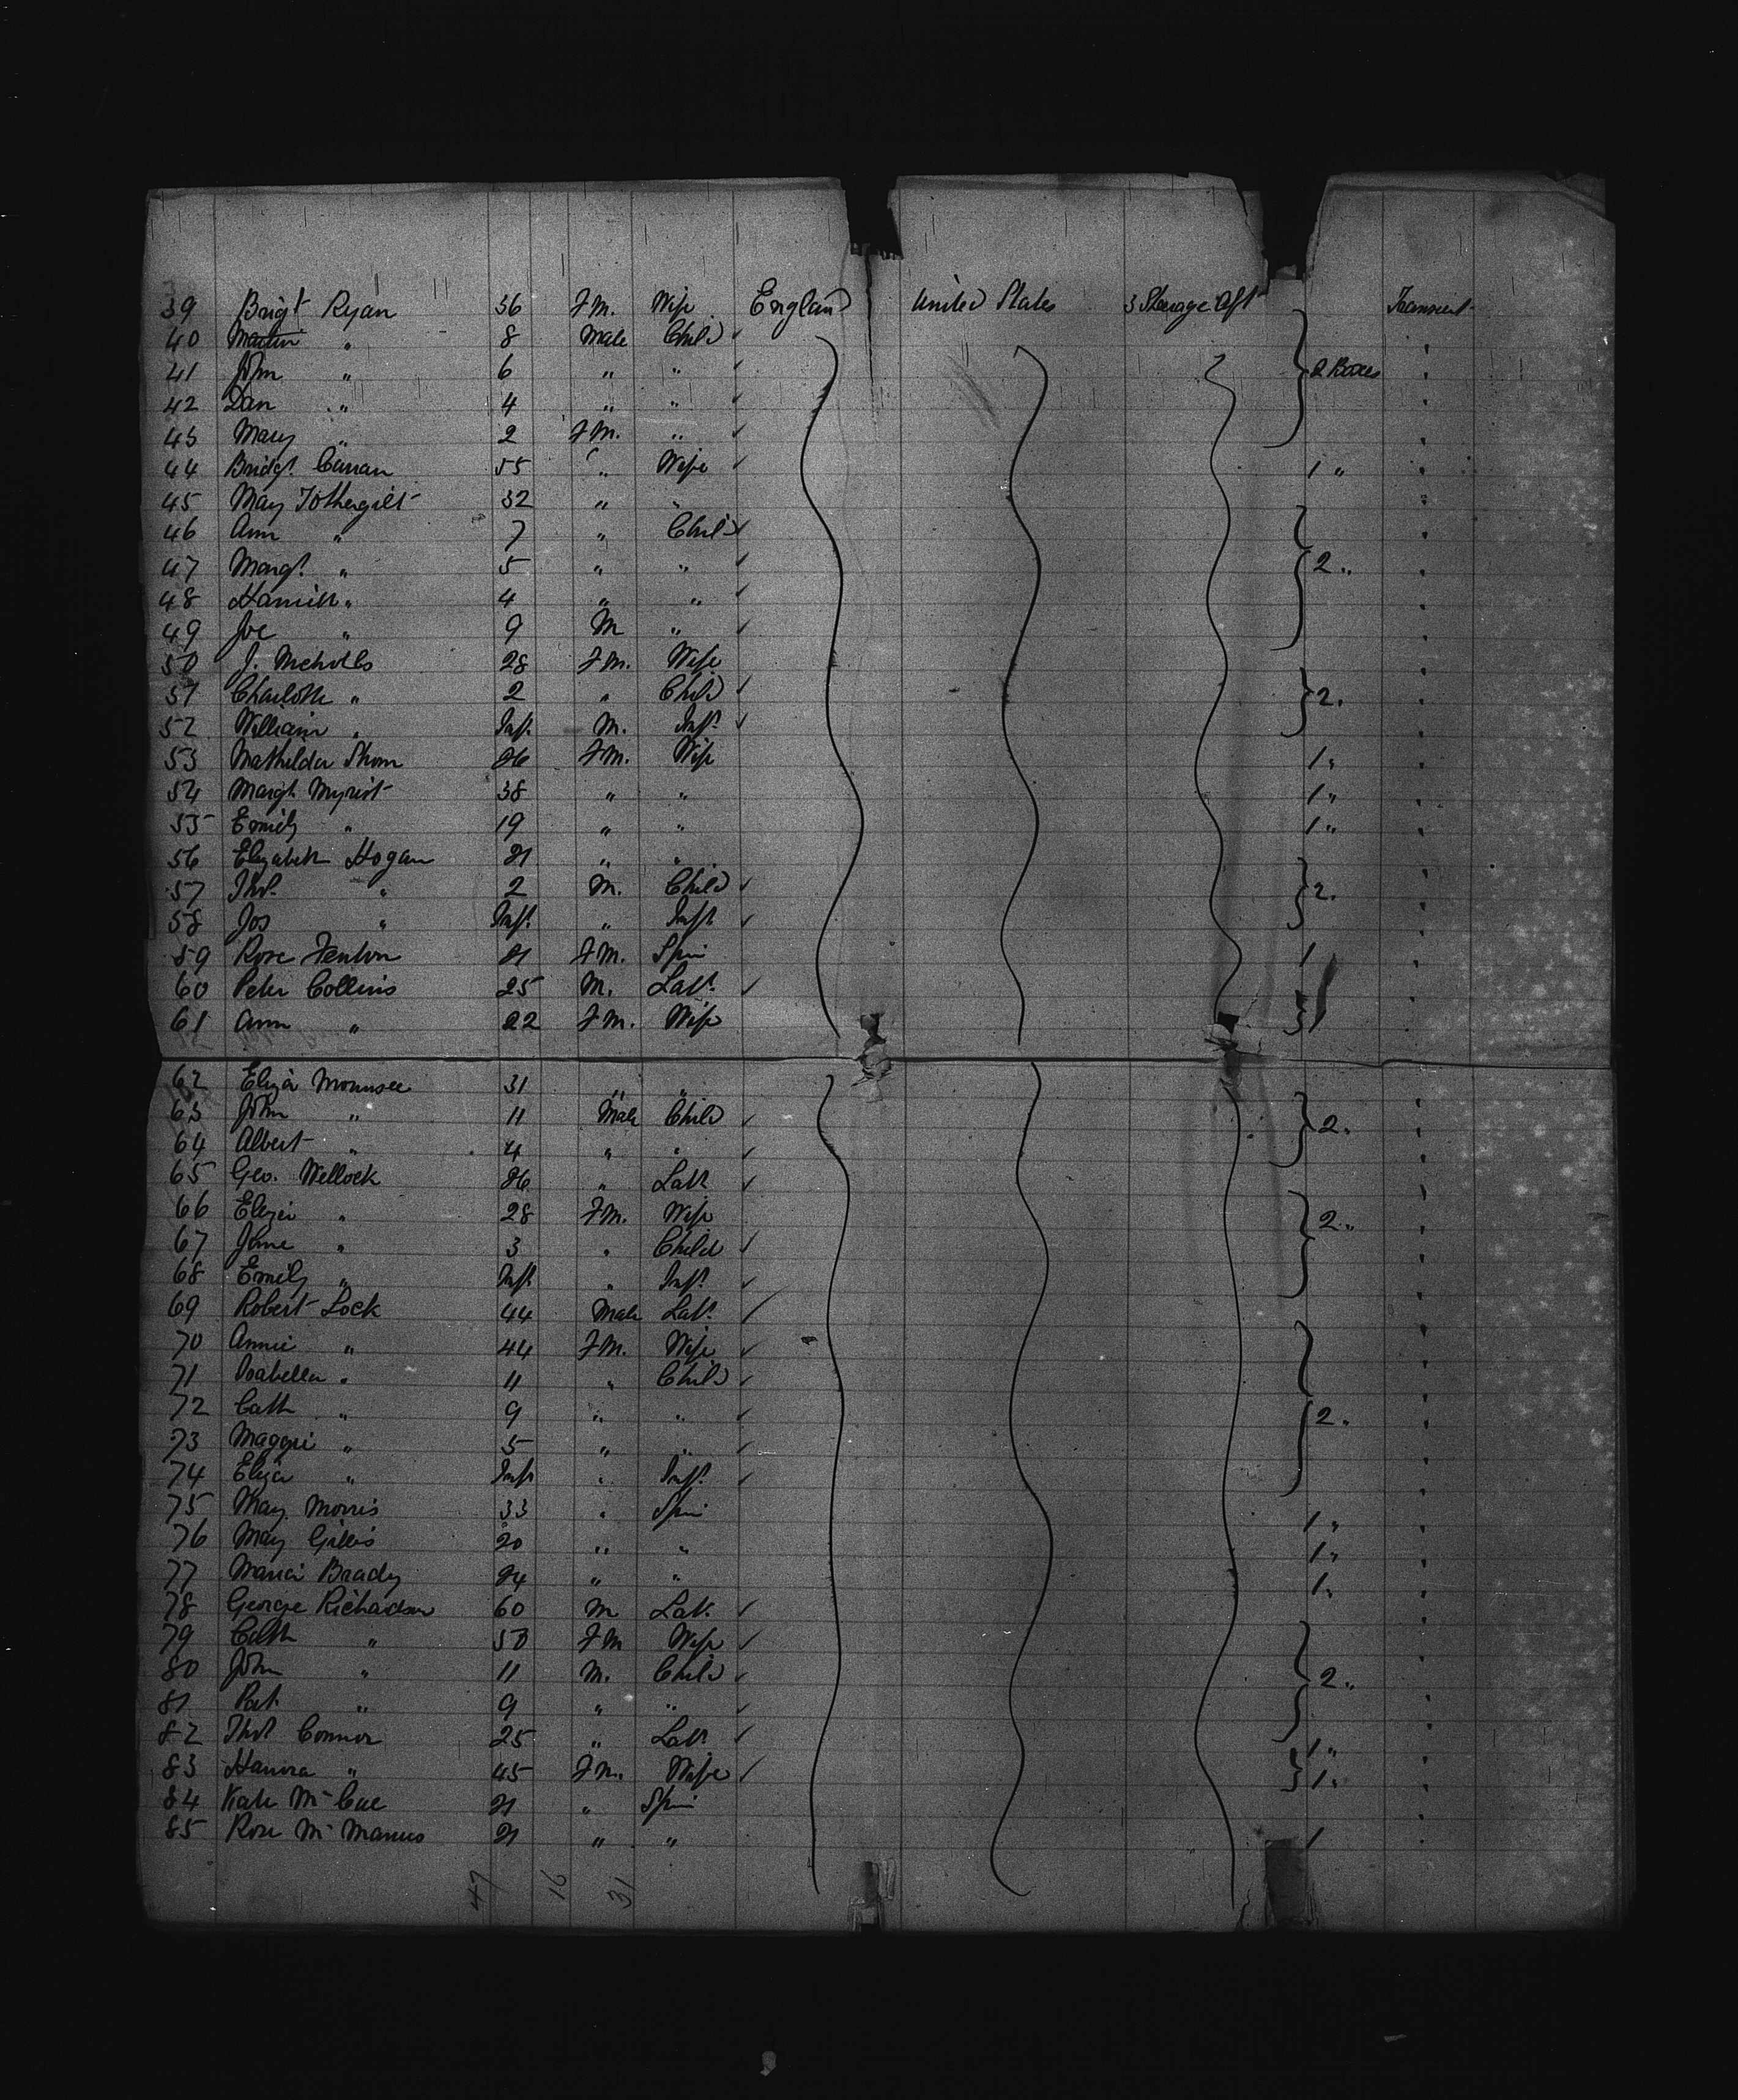 39 Brigt Ryan 36 F.M. Wife England United States 3 Steerage Aft Transient
40 Martin " 8 Male Child
41 John " 6 " " 2 Boxes
42 Dan " 4 " "
43 Mary " 2 F.M. "
44 Bridgt. 55 " Wife 1 "
45 May Fothergill 32 " "
46 Ann " 7 " Child
47 Margt. " 5 " " 2 "
48 " 4 " "
49 Joe " 9 M "
50 J. Nicholls 28 F.M. Wife
51 Charlotte " 2 " Child 2 "
52 William " Inft. M. Inft.
53 Mathilda 26 F.M. Wife 1 "
54 Margt. 38 " " 1 "
55 Emily " 19 " " 1 "
56 Elizabeth Hogan 21 " "
57 Thos. " 2 M. Child 2 "
58 Jos " Inft. " Inft
59 Rose Fenton 21 F.M. Spin 1
60 Peter Collins 25 M. Labr.
61 Ann " 22 F.M. Wife 1
62 Eliza 31 " "
63 John " 11 Male Child 2 "
64 Albert " 4 " "
65 Geo. Wellock 26 " Labr
66 Eliza " 28 F.M. Wife 2 "
67 Jane " 3 " Child
68 Emily " Inft " Inft.
69 Robert Lock 44 Male Labr.
70 Annie " 44 F.M. Wife
71 Isabella " 11 " Child
72 Cath " 9 " " 2 "
73 Maggie " 5 " "
74 Eliza " Inft " Inft.
75 May Morris 33 " Spin 1 "
76 May Gillis 20 " " 1 "
77 Maria Brady 24 " " 1 "
78 George Richadson 60 M Labr.
79 Cath " 50 F M Wife
80 John " 11 M. Child 2 "
81 Pat " 9 " "
82 Thos Connor 25 " Labr 1 "
83 Hanora " 45 F M. Wife 1 "
84 Kate McCue 21 " Spin
85 Rose McManus 21 " " 1
47 16 31